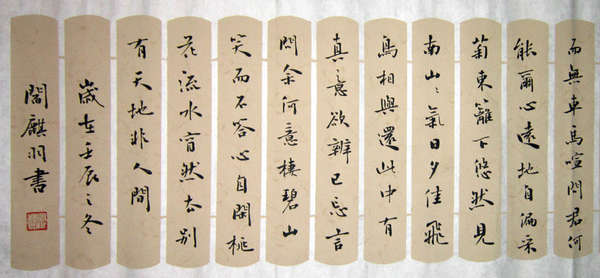 而無車馬喧問君何
能爾心遠地自偏采
菊東籬下悠然見
南山〻氣日夕佳飛
鳥相與還此中有
真意欲辨已忘言
問余何意棲碧山
笑而不答心自閑桃
花流水窅然去別
有天地非人間
歲在壬辰之冬
閻麒羽書